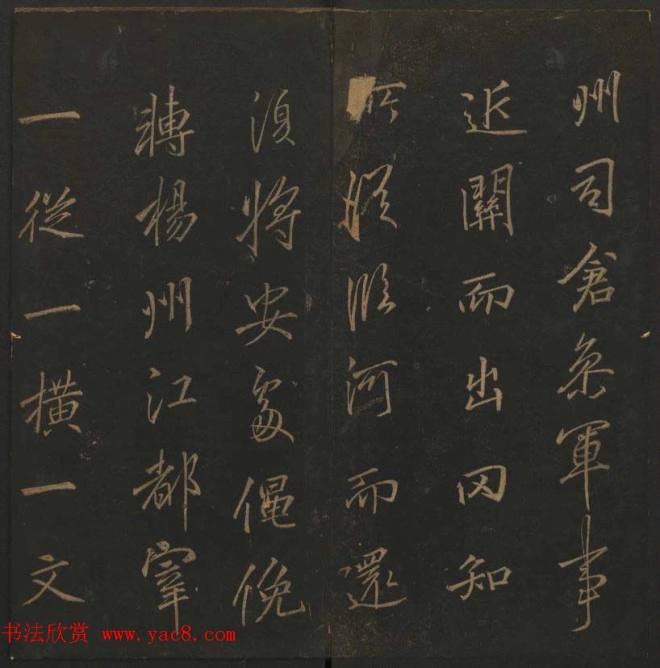 州司倉叅軍事
近關而出罔知
所從臨河而還
復將安處僶俛
轉楊州江都宰
一從一橫一文
书法欣赏 www.yac8.com